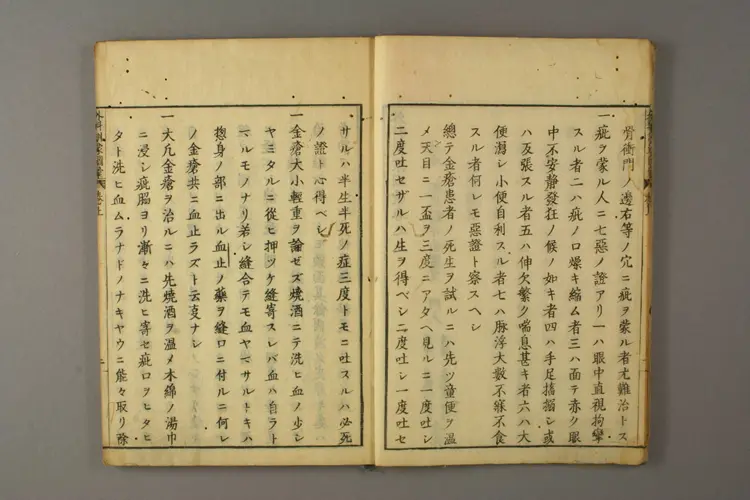 骨衝門ノ邊右等ノ穴ニ疵ヲ蒙ル者尤難治トス
一疵ヲ蒙ル人ニ七惡ノ證アリ一ハ眼中直視拘攣
スル者二ハ疵ノ口燥キ縮ム者三ハ面テ赤ク眼
中不安靜發狂ノ候ノ如キ者四ハ手足搐搦シ或
ハ反張スル者五ハ伸欠繁ク喘息甚キ者六ハ大
便濕シ小便自利スル者七ハ脉浮大數不寐不食
スル者何レモ惡證ト察スヘシ
總テ金瘡患者ノ死生ヲ試ルニハ先ツ童便ヲ温
メ天目ニ一盃ヲ三度ニアタヘ見ルニ一度吐シ
二度吐セザルハ生ヲ得ベシ二度吐シ一度吐セ
サルハ半生半死ノ症三度トモニ吐スルハ必死
ノ證ト心得ベシ
一金瘡大小輕重ヲ論ゼズ燒酒ニテ洗ヒ血ノ少シ
ヤミタルニ從ヒ押ツケ縫寄スレバ血ハ自ラト
マルモノナリ若シ縫合テモ血ヤマサルトキハ
惣身ノ部ニ出ル血止ノ藥ヲ縫口ニ付ルニ何レ
ノ金瘡共ニ血止ラズト云夌ナシ
一大凡金瘡ヲ治ルニハ先燒酒ヲ温メ木綿ノ湯巾
ニ浸シ疵腦ヨリ漸々ニ洗ヒ寄セ疵口ヲヒタヒ
タト洗ヒ血ムラナドノナキヤウニ能々取リ除